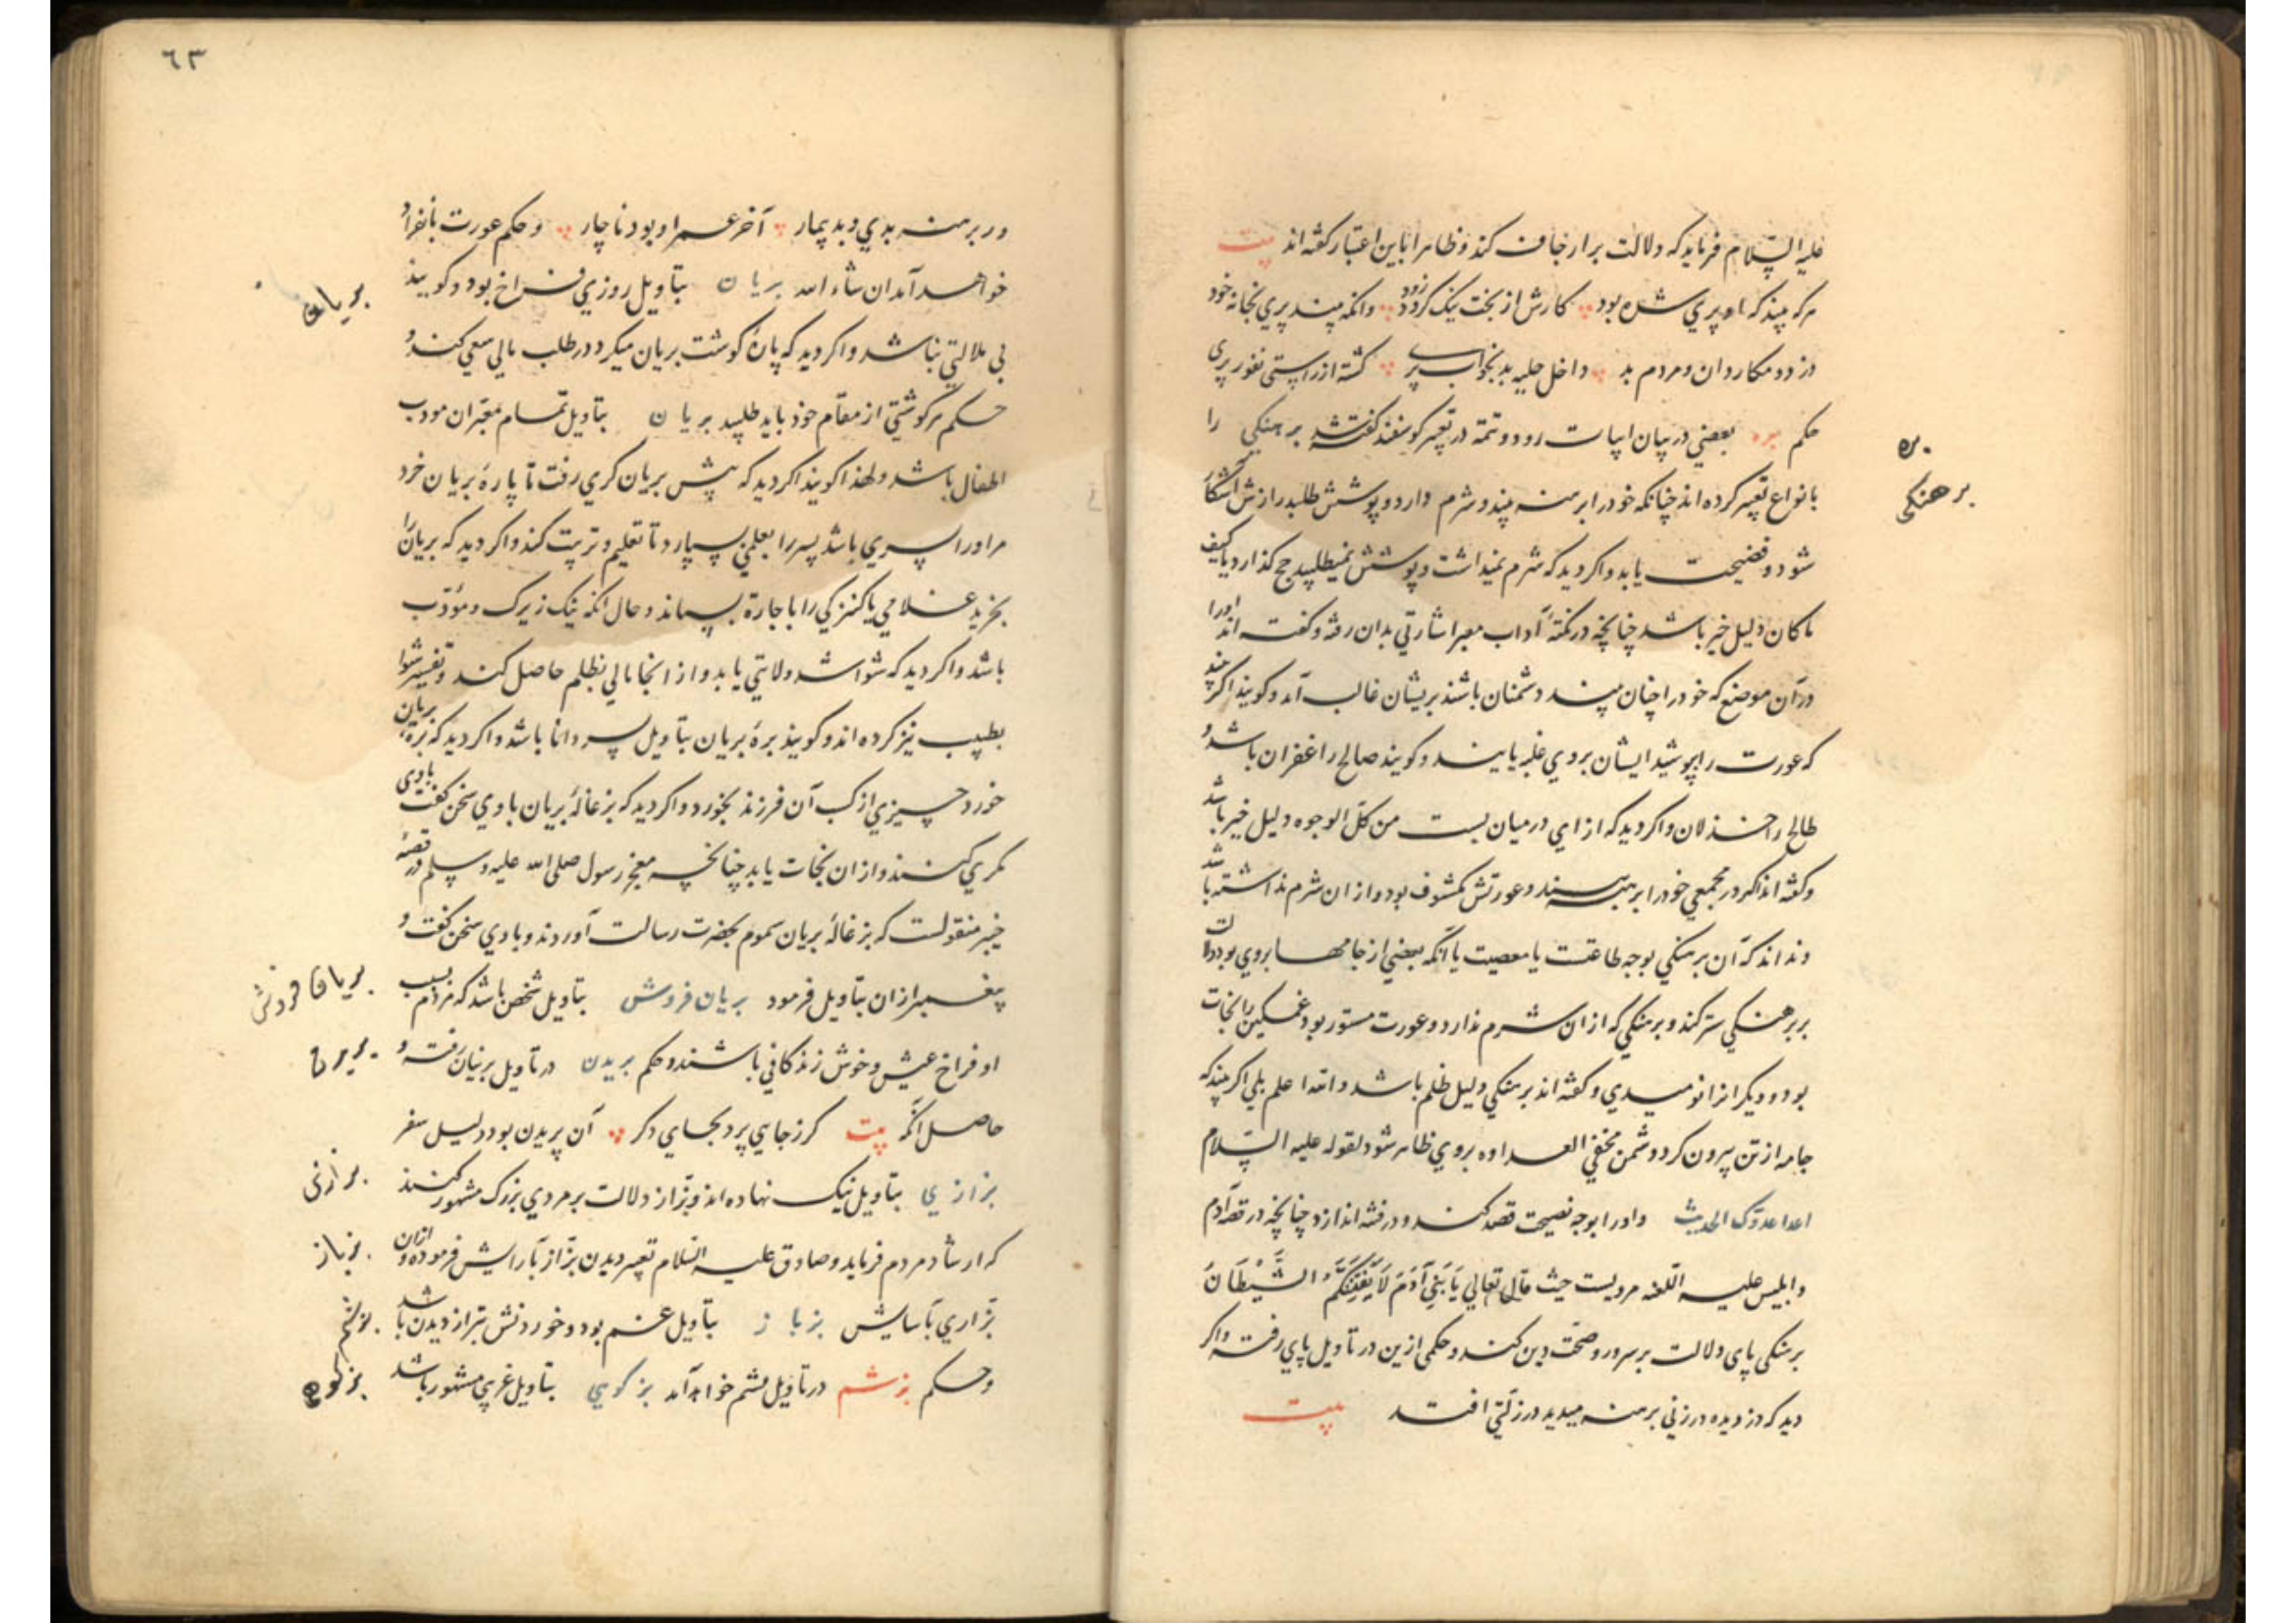 علیه السّلام فرماید که دلالت برارجاف کند و ظاهرا باین اعتبار گفته‌اند بیت
هرکه بیند که او پری شده بود کارش از بخت نیک گردد زود وانکه بیند پری بخانه خود
دزد و مکار دان و مردم بد داخل حلیه بد بخواب پری گشته از راستی نفور بری
حکم بره بعضی در بیان ابیات رود و تتمه در تعبیر کوسفند گفته شد برهنکی را
بانواع تعبیر کرده‌اند چنانکه خود را برهنه بیند و شرم دارد و پوشش طلبد رازش آشکارا
شود و فضیحت یابد و اکر دید که شرم نمیداشت و پوشش نمیطلبید حج کذارد یا کیف
ماکان دلیل خیر باشد چنانچه در نکتۀ آداب معبر اشارتی بدان رفته و گفته‌اند او را
در آن موضع که خود را چنان بیند دشمنان باشند بریشان غالب آید و کویند اکر بیند
که عورت را بپوشید ایشان بروی غلبه یابند و کویند صالح را غفران باشد و
طالح را خذلان و اکر دید که ازاری در میان بست من کلّ الوجوه دلیل خیر باشد
و گفته‌اند اکر در مجمعی خود را برهنه بیند و عورتش مکشوف بود و از ان شرم نداشته باشد
و نداند که آن برهنکی بوجه طاعتست یا معصیت یا آنکه بعضی از جامها بروی بود دلالت
بر برهنکی ستر کند و برهنکی که ازان شرم ندارد و عورت مستور بود غمکین را نجات
بود و دیکرانرا نومیدی و گفته‌اند برهنکی دلیل ظلم باشد و الله اعلم بلی اکر بیند که
جامه از تن بیرون کرد دشمن مخفی العداوه بروی ظاهر شود لقوله علیه السّلام
اعدا عدوّک الحدیث و او را بوجه نصیحت قصد کند و در فتنه اندازد چنانچه در قصه آدم
و ابلیس علیه اللّعنه مرویست حیث قال تعالی یَا بَنِی آدَمَ لَا یَفْتِنَنَّکُمُ الشَّیْطَانُ
برهنکی پای دلالت بر سرور و صحّت دین کند و حکمی ازین در تاویل پای رفته و اکر
دید که دزدیده در زنی برهنه میدید در زلّتی افتد بیت
بره
برهنکی
٦٣
ور برهنه بدی و بد بیمار آخر عمر او بود ناچار و حکم عورت بانفراد
خواهد آمد ان شاء الله بریان بتاویل روزی فراخ بود و کویند
بی ملالتی نباشد و اکر دید که پارۀ کوشت بریان میکرد در طلب مالی سعی کند و
حکم هر کوشتی از مقام خود باید طلبید بریان بتاویل تمام معبّران مودب
اطفال باشد و لهذا کویند اکر دید که پیش بریان کری رفت تا پارۀ بریان خرد
مر او را پسری باشد پسر را بمعلمی بسپارد تا تعلیم و تربیت کند و اکر دید که بریان را
بخرید غلامی یا کنیزکی را باجارة بستاند و حال آنکه نیک زیرک و مؤدّب
باشد و اکر دید که شوا شد ولایتی یابد و از انجا مالی بظلم حاصل کند و تفسیر شوا
بطبیب نیز کرده‌اند و کویند برۀ بریان بتاویل پسر دانا باشد و اکر دید که برۀ بریان
خورد چیزی از کسب آن فرزند بخورد و اکر دید که بزغالۀ بریان با وی سخن کفت با وی
مکری کنند و ازان نجات یابد چنانچه معجز رسول صلی الله علیه و سلم در قصۀ
خیبر منقولست که بزغالۀ بریان مسموم بحضرت رسالت آوردند و با وی سخن کفت و
پیغمبر ازان بتاویل فرمود بریان فروش بتاویل شخصی باشد که مردم بسبب
او فراخ عیش و خوش زندکانی باشند و حکم بریدن در تاویل رفته و
حاصل آنکه بیت کر ز جایی پرد بجای دکر آن پریدن بود دلیل سفر
بزازی بتاویل نیک نهاده‌اند و بزّاز دلالت بر مردی بزرک مشهور کنند
که ارشاد مردم فرماید و صادق علیه السّلام تعبیر دیدن بزّاز بآرایش فرموده و ازان
بزازی بآسایش بزباز بتاویل غم بود و خوردنش بتر از دیدن باشد
و حکم بزشم در تاویل پشم خواهد آمد بز کوهی بتاویل غریبی مشهور باشد
بریان
بریان فروش
بریدن
بزازی
بزباز
بزشم
بزکوهی